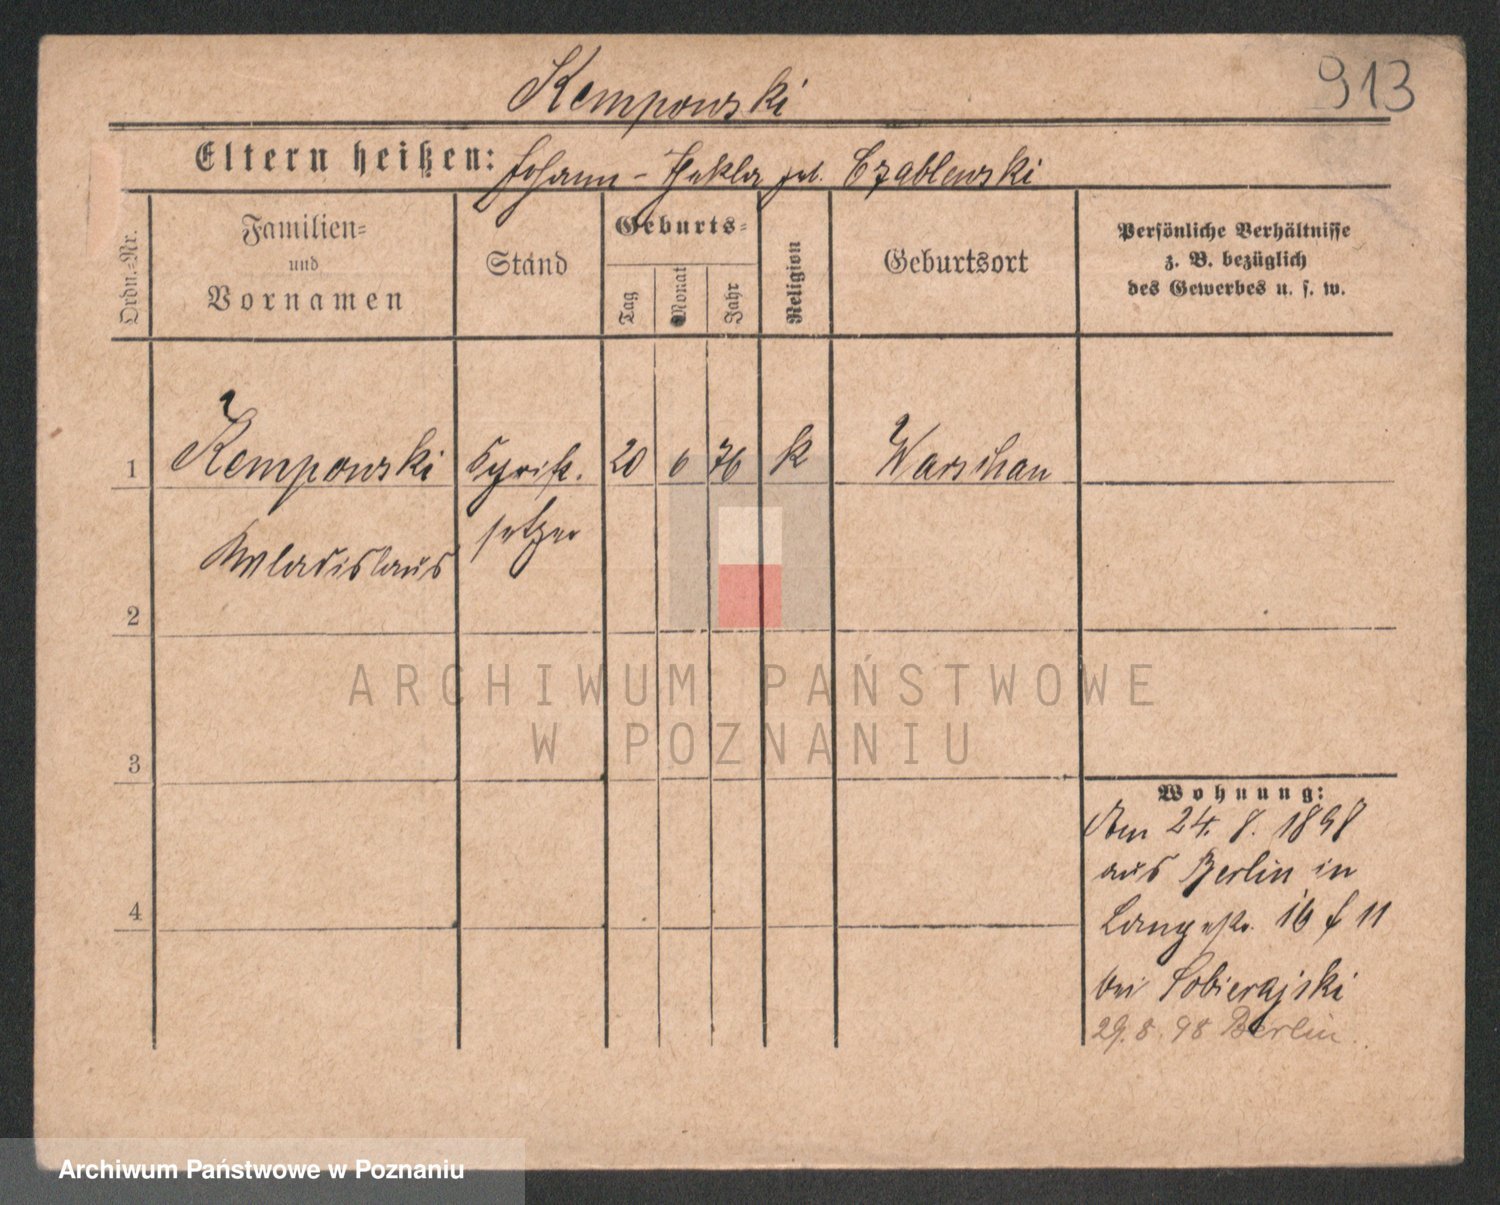 Kempowski
913
Eltern heißen: Johann - Thekla geb. Czablewski
Ordn.-Nr.
Familien=
und
Vornamen
Stand
Geburts=
Tag
Monat
Jahr
Religion
Geburtsort
Persönliche Verhältnisse
z. B. bezüglich
des Gewerbes u. s. w.
1 Kempowski Schrift- 20 6 76 k Warschau
Wladislaus setzer
2
ARCHIWUM PAŃSTWOWE
W POZNANIU
3
Wohnung:
Am 24. 8. 1898
aus Berlin in
4
Langestr. 16 f 11
bei Sobierajski
29. 8. 98 Berlin
Archiwum Państwowe w Poznaniu